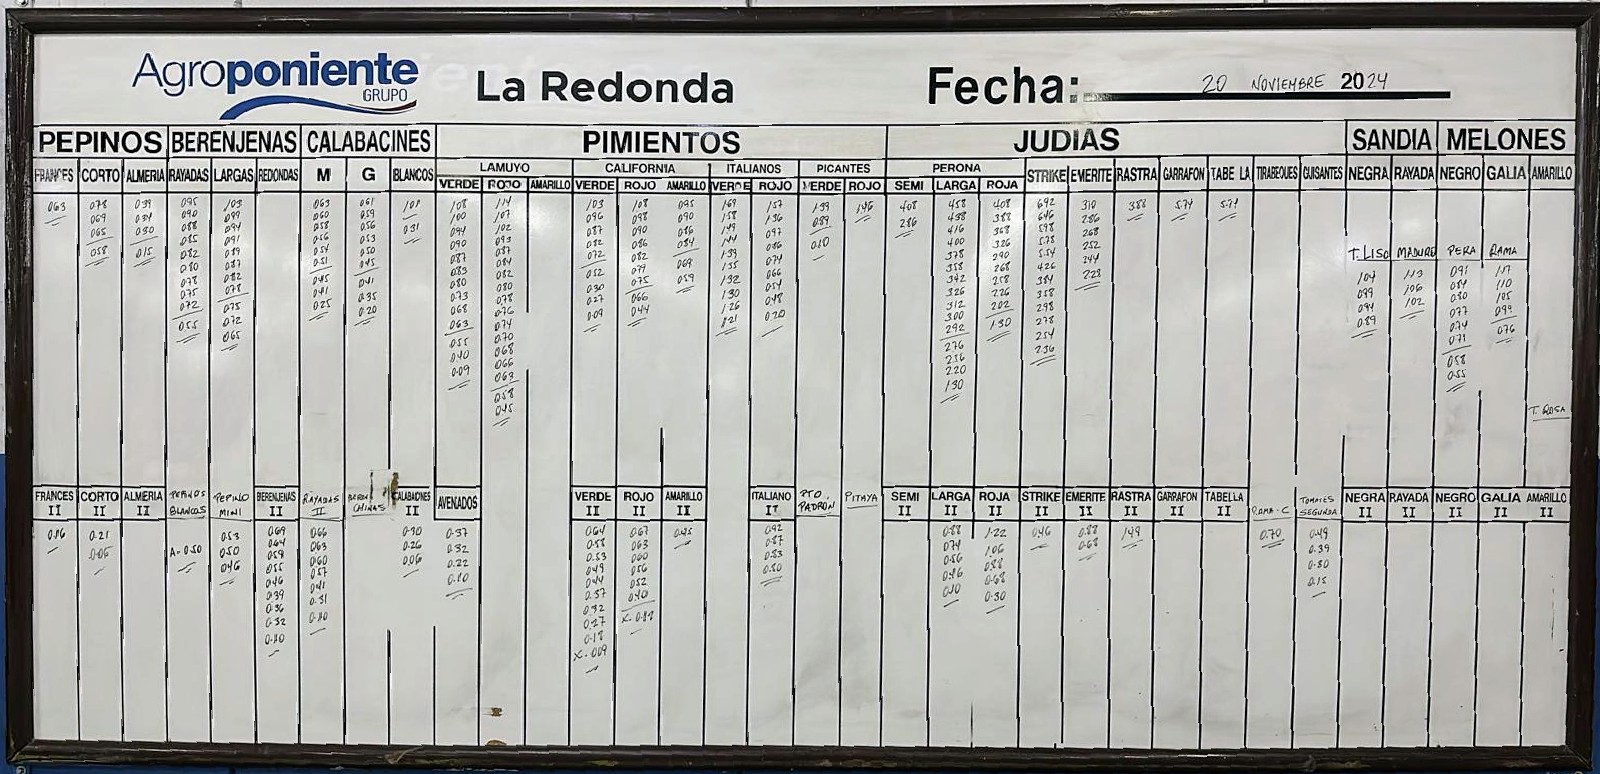 Agroponiente
GRUPO
La Redonda
Fecha: 20 NOVIEMBRE 2024
PEPINOS BERENJENAS CALABACINES PIMIENTOS JUDIAS SANDIA MELONES
LAMUYO CALIFORNIA ITALIANOS PICANTES PERONA
FRANCES CORTO ALMERIA RAYADAS LARGAS REDONDAS M G BLANCOS VERDE ROJO AMARILLO VERDE ROJO AMARILLO VERDE ROJO VERDE ROJO SEMI LARGA ROJA STRIKE EMERITE RASTRA GARRAFON TABE LA TIRABEQUES GUISANTES NEGRA RAYADA NEGRO GALIA AMARILLO
063 078 039 095 103 063 061 101 108 114 103 108 095 169 157 139 146 408 458 408 692 310 388 574 574
069 034 090 099 060 059 031 100 107 096 098 090 158 136 089 286 438 388 646 286
065 030 088 094 058 056 094 102 087 090 086 149 097 010 416 368 598 268
058 015 085 091 056 053 090 093 082 086 084 144 086 400 326 578 252
082 089 054 050 087 087 072 082 069 139 074 378 290 554 244
080 087 051 045 083 084 052 079 059 135 066 358 268 426 228
078 082 045 041 080 082 030 075 132 054 342 258 384
075 078 041 035 073 080 027 066 130 048 326 226 358
072 075 025 020 068 078 009 044 126 020 312 202 298
055 072 063 076 121 300 130 278
065 055 074 292 254
040 070 276 236
009 068 256
066 220
063 130
058
045
T. LISO MADURO PERA RAMA
104 113 091 117
099 106 084 110
094 102 080 105
089 077 099
074 076
071
058
055
T. ROSA
FRANCES II CORTO II ALMERIA II PEPINOS BLANCOS PEPINO MINI BERENJENAS II RAYADAS II CHINAS CALABACINES II AVENADOS VERDE II ROJO II AMARILLO II ITALIANO II PTO. PADRON PITAYA SEMI II LARGA II ROJA II STRIKE II EMERITE II RASTRA II GARRAFON II TABELLA II TOMATES SEGUNDA NEGRA II RAYADA II NEGRO II GALIA II AMARILLO II
0.16 0.21 053 069 066 0.30 0.37 064 067 045 0.92 0.88 1.22 0.46 0.88 149 0.70 0.49
0.06 A-0.50 050 064 063 0.26 0.32 0.58 063 0.87 074 1.06 0.68 0.39
046 059 060 0.06 0.22 0.53 060 0.83 0.56 0.88 0.30
055 057 0.10 049 056 0.80 0.16 0.68 0.15
046 041 044 052 0.10 0.30
039 0.31 0.37 040
0.36 0.10 0.32 X-0.12
0.32 0.27
0.10 0.18
X-009